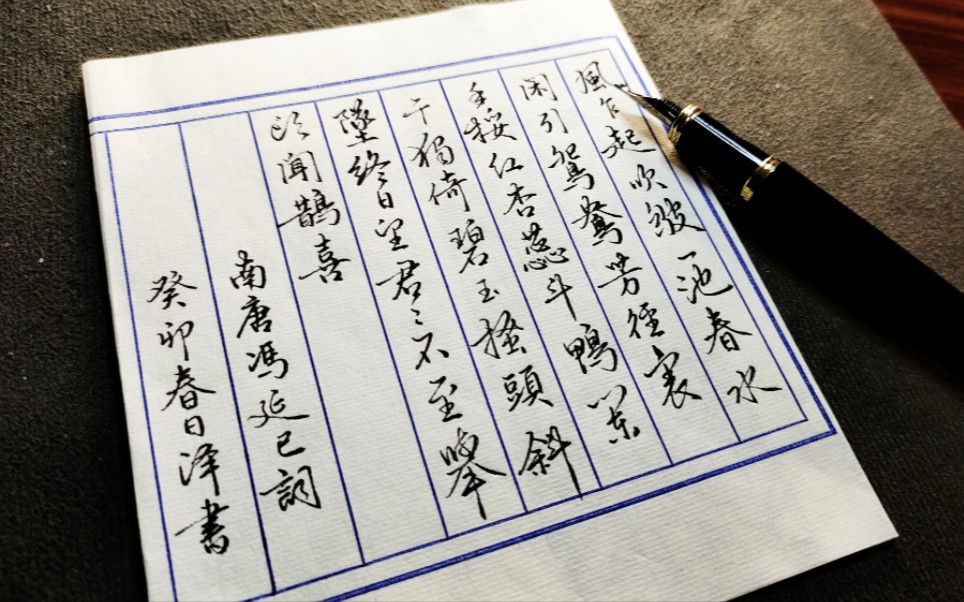 風乍起吹皺一池春水
闲引鴛鴦芳徑裏
手挼红杏蕊斗鴨闌
干獨倚碧玉搔頭斜
墜終日望君〻不至舉
頭聞鵲喜
南唐馮延巳詞
癸卯春日澤書